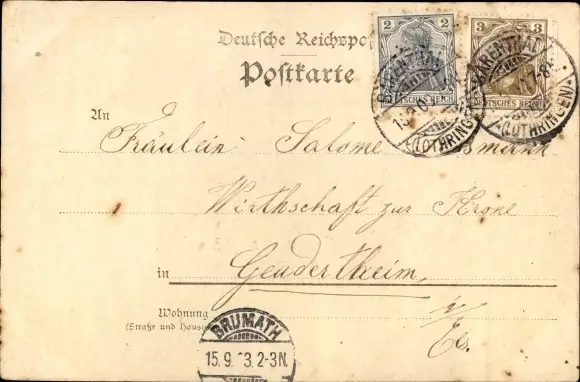 Deutsche Reichspo
Postkarte
2 2
DEUTSCHES REICH
3 3
DEUTSCHES REICH
BÄRENTHAL
(LOTHRINGEN)
BÄRENTHAL
(LOTHRINGEN)
An
Fräulein Salome
Wirthschaft zur Krone
in Geudertheim
Wohnung
(Straße und Hausn
i/
Els.
BRUMATH
15.9. 3.2-3N.